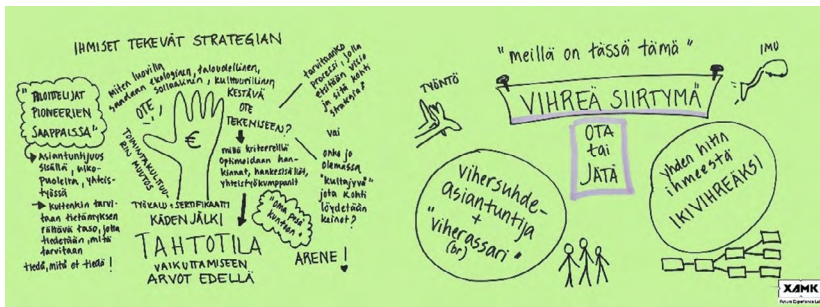 IHMISET TEKEVÄT STRATEGIAN
"ALOITTELIJAT
PIONEERIEN
SAAPPAISSA"
→ Asiantuntijuus
sisällä, ulko-
puolelta, yhteis-
työssä
→ Kuitenkin tarvi-
taan tietämyksen
riittävä taso, jotta
tiedetään, mitä
tarvitaan
tiedä, mitä et tiedä!
Miten luovilla
saadaan ekologinen, taloudellinen,
sosiaalinen, kulttuurillinen
KESTÄVÄ
OTE
TEKEMISEEN?
OTE
TOIMINTAKULTTUU
RIN MUUTOS
€
millä kriteereillä
optimoidaan han-
kinnat, hankesisällöt,
yhteistyökumppanit
TYÖKALU + SERTIFIKAATTI
KÄDEN JÄLKI
TAHTOTILA
VAIKUTTAMISEEN
ARVOT EDELLÄ
"OMA PESÄ
KUNTOON"
tarvitaanko
prosessi, jolla
etsitään visio
ja sitä kohti
strategia?
vai
onko jo
olemassa
"kultajyvä"
jota kohti
löydetään
keinot?
ARENE!
"meillä on tässä tämä"
TYÖNTÖ
IMU
VIHREÄ SIIRTYMÄ
OTA
tai
JÄTÄ
vihersuhde-
asiantuntija
+
"viherassari"
(br)
yhden hitin
ihmeestä
IKIVIHREÄKSI
XAMK
Future Experience Lab